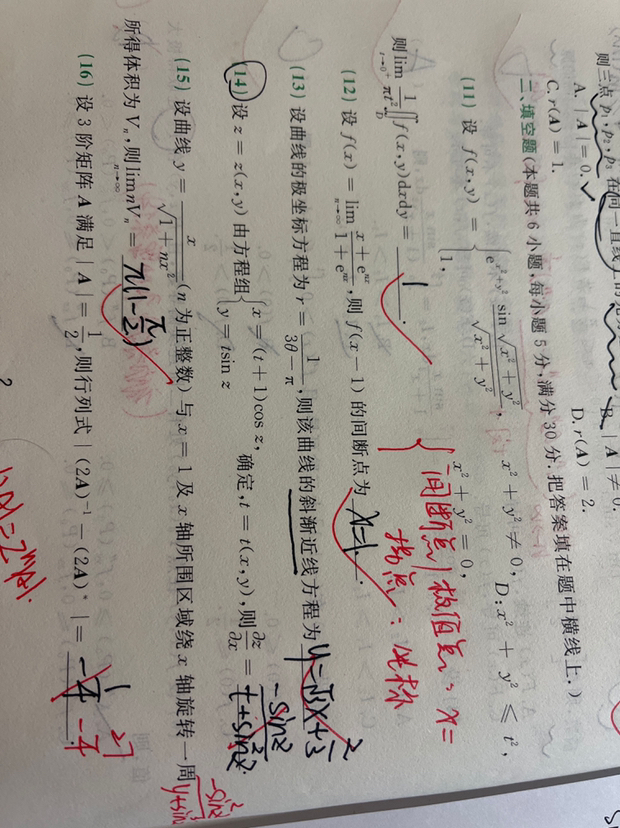 则三点 p₁,p₂,p₃ 在同一直线上的
A. |A|=0. B. |A|≠0.
C. r(A)=1. D. r(A)=2.
二、填空题(本题共 6 小题,每小题 5 分,满分 30 分. 把答案填在题中横线上.)
(11) 设 f(x,y) = { e^{x²+y²} sin√(x²+y²) / √(x²+y²), x²+y²≠0,
1, x²+y²=0, D: x²+y² ≤ t²,
则 lim_{t→0⁺} 1/(πt²) ∬_D f(x,y)dxdy = 1 .
间断点/极值点: x=
拐点: 坐标
(12) 设 f(x) = lim_{n→∞} (x+e^{nx})/(1+e^{nx}), 则 f(x−1) 的间断点为 x=1 .
(13) 设曲线的极坐标方程为 r = 1/(3θ−π), 则该曲线的斜渐近线方程为 y=√3x+2/3
(14) 设 z = z(x,y) 由方程组 { x=(t+1)cos z, y=tsin z 确定, t=t(x,y), 则 ∂z/∂x = −sinz/(t+sin²z) .
(15) 设曲线 y = x/√(1+nx²) (n 为正整数) 与 x=1 及 x 轴所围区域绕 x 轴旋转一周
所得体积为 Vₙ, 则 lim_{n→∞} nVₙ = π(1−π/2)
(16) 设 3 阶矩阵 A 满足 |A| = 1/2, 则行列式 |(2A)⁻¹−(2A)*| =